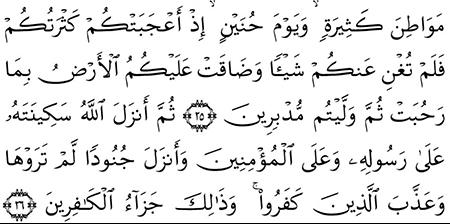 مَوَاطِنَ كَثِيرَةٍ ۙ وَيَوْمَ حُنَيْنٍ ۙ إِذْ أَعْجَبَتْكُمْ كَثْرَتُكُمْ
فَلَمْ تُغْنِ عَنكُمْ شَيْـًٔا وَضَاقَتْ عَلَيْكُمُ ٱلْأَرْضُ بِمَا
رَحُبَتْ ثُمَّ وَلَّيْتُم مُّدْبِرِينَ ٢٥ ثُمَّ أَنزَلَ ٱللَّهُ سَكِينَتَهُۥ
عَلَىٰ رَسُولِهِۦ وَعَلَى ٱلْمُؤْمِنِينَ وَأَنزَلَ جُنُودًا لَّمْ تَرَوْهَا
وَعَذَّبَ ٱلَّذِينَ كَفَرُوا۟ ۚ وَذَٰلِكَ جَزَآءُ ٱلْكَـٰفِرِينَ ٢٦